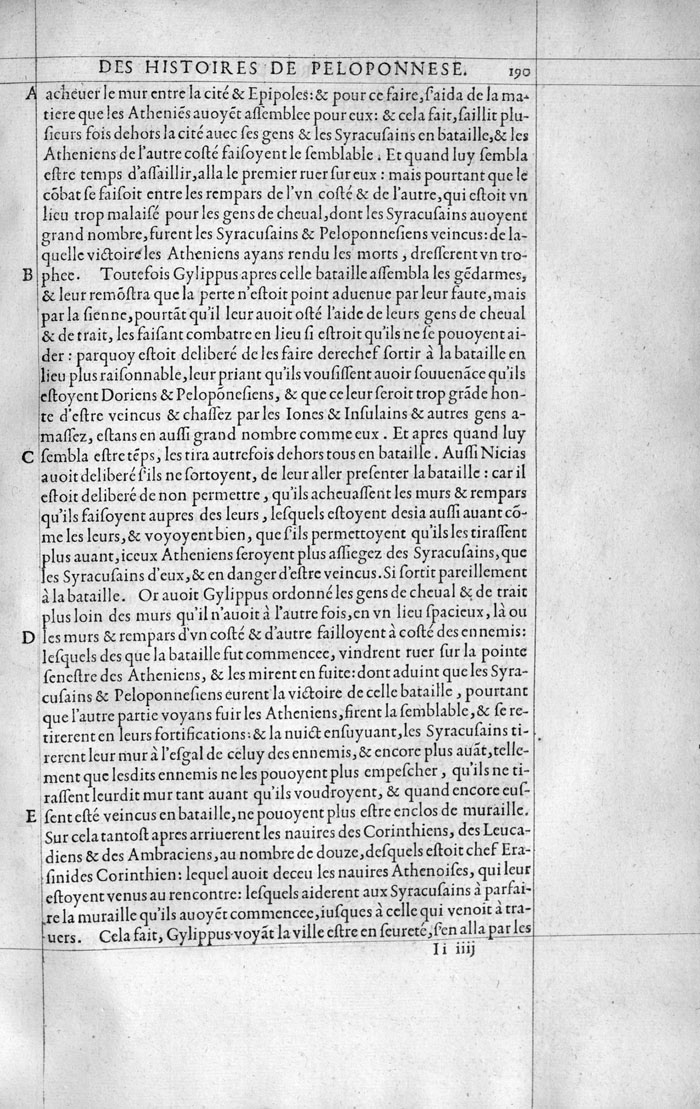 DES HISTOIRES DE PELOPONNESE. 190
A acheuer le mur entre la cité & Epipoles: & pour ce faire, ſ'aida de la ma-
tiere que les Atheniẽs auoyẽt aſſemblee pour eux: & cela fait, ſaillit plu-
ſieurs fois dehors la cité auec ſes gens & les Syracuſains en bataille, & les
Atheniens de l'autre coſté faiſoyent le ſemblable. Et quand luy ſembla
eſtre temps d'aſſaillir, alla le premier ruer ſur eux: mais pourtant que le
cõbat ſe faiſoit entre les rempars de l'vn coſté & de l'autre, qui eſtoit vn
lieu trop malaiſé pour les gens de cheual, dont les Syracuſains auoyent
grand nombre, furent les Syracuſains & Peloponneſiens veincus: de la-
quelle victoire les Atheniens ayans rendu les morts, dreſſerent vn tro-
B phee. Toutefois Gylippus apres celle bataille aſſembla les gẽdarmes,
& leur remõſtra que la perte n'eſtoit point aduenue par leur faute, mais
par la ſienne, pourtãt qu'il leur auoit oſté l'aide de leurs gens de cheual
& de trait, les faiſant combatre en lieu ſi eſtroit qu'ils ne ſe pouoyent ai-
der: parquoy eſtoit deliberé de les faire derechef ſortir à la bataille en
lieu plus raiſonnable, leur priant qu'ils vouſiſſent auoir ſouuenãce qu'ils
eſtoyent Doriens & Pelopõneſiens, & que ce leur ſeroit trop grãde hon-
te d'eſtre veincus & chaſſez par les Iones & Inſulains & autres gens a-
maſſez, eſtans en auſſi grand nombre comme eux. Et apres quand luy
C ſembla eſtre tẽps, les tira autrefois dehors tous en bataille. Auſſi Nicias
auoit deliberé ſ'ils ne ſortoyent, de leur aller preſenter la bataille: car il
eſtoit deliberé de non permettre, qu'ils acheuaſſent les murs & rempars
qu'ils faiſoyent aupres des leurs, leſquels eſtoyent desia auſſi auant cõ-
me les leurs, & voyoyent bien, que ſ'ils permettoyent qu'ils les tiraſſent
plus auant, iceux Atheniens ſeroyent plus aſſiegez des Syracuſains, que
les Syracuſains d'eux, & en danger d'eſtre veincus. Si ſortit pareillement
à la bataille. Or auoit Gylippus ordonné les gens de cheual & de trait
plus loin des murs qu'il n'auoit à l'autre fois, en vn lieu ſpacieux, là ou
D les murs & rempars d'vn coſté & d'autre failloyent à coſté des ennemis:
leſquels des que la bataille fut commencee, vindrent ruer ſur la pointe
ſeneſtre des Atheniens, & les mirent en fuite: dont aduint que les Syra-
cuſains & Peloponneſiens eurent la victoire de celle bataille, pourtant
que l'autre partie voyans fuir les Atheniens, firent la ſemblable, & ſe re-
tirerent en leurs fortifications: & la nuict enſuyuant, les Syracuſains ti-
rerent leur mur à l'eſgal de celuy des ennemis, & encore plus auãt, telle-
ment que leſdits ennemis ne les pouoyent plus empeſcher, qu'ils ne ti-
raſſent leurdit mur tant auant qu'ils voudroyent, & quand encore euſ-
E ſent eſté veincus en bataille, ne pouoyent plus eſtre enclos de muraille.
Sur cela tantoſt apres arriuerent les nauires des Corinthiens, des Leuca-
diens & des Ambraciens, au nombre de douze, deſquels eſtoit chef Era-
ſinides Corinthien: lequel auoit deceu les nauires Athenoiſes, qui leur
eſtoyent venus au rencontre: leſquels aiderent aux Syracuſains à parfai-
re la muraille qu'ils auoyẽt commencee, iuſques à celle qui venoit à tra-
uers. Cela fait, Gylippus voyãt la ville eſtre en ſeureté, ſ'en alla par les
Ii iiij